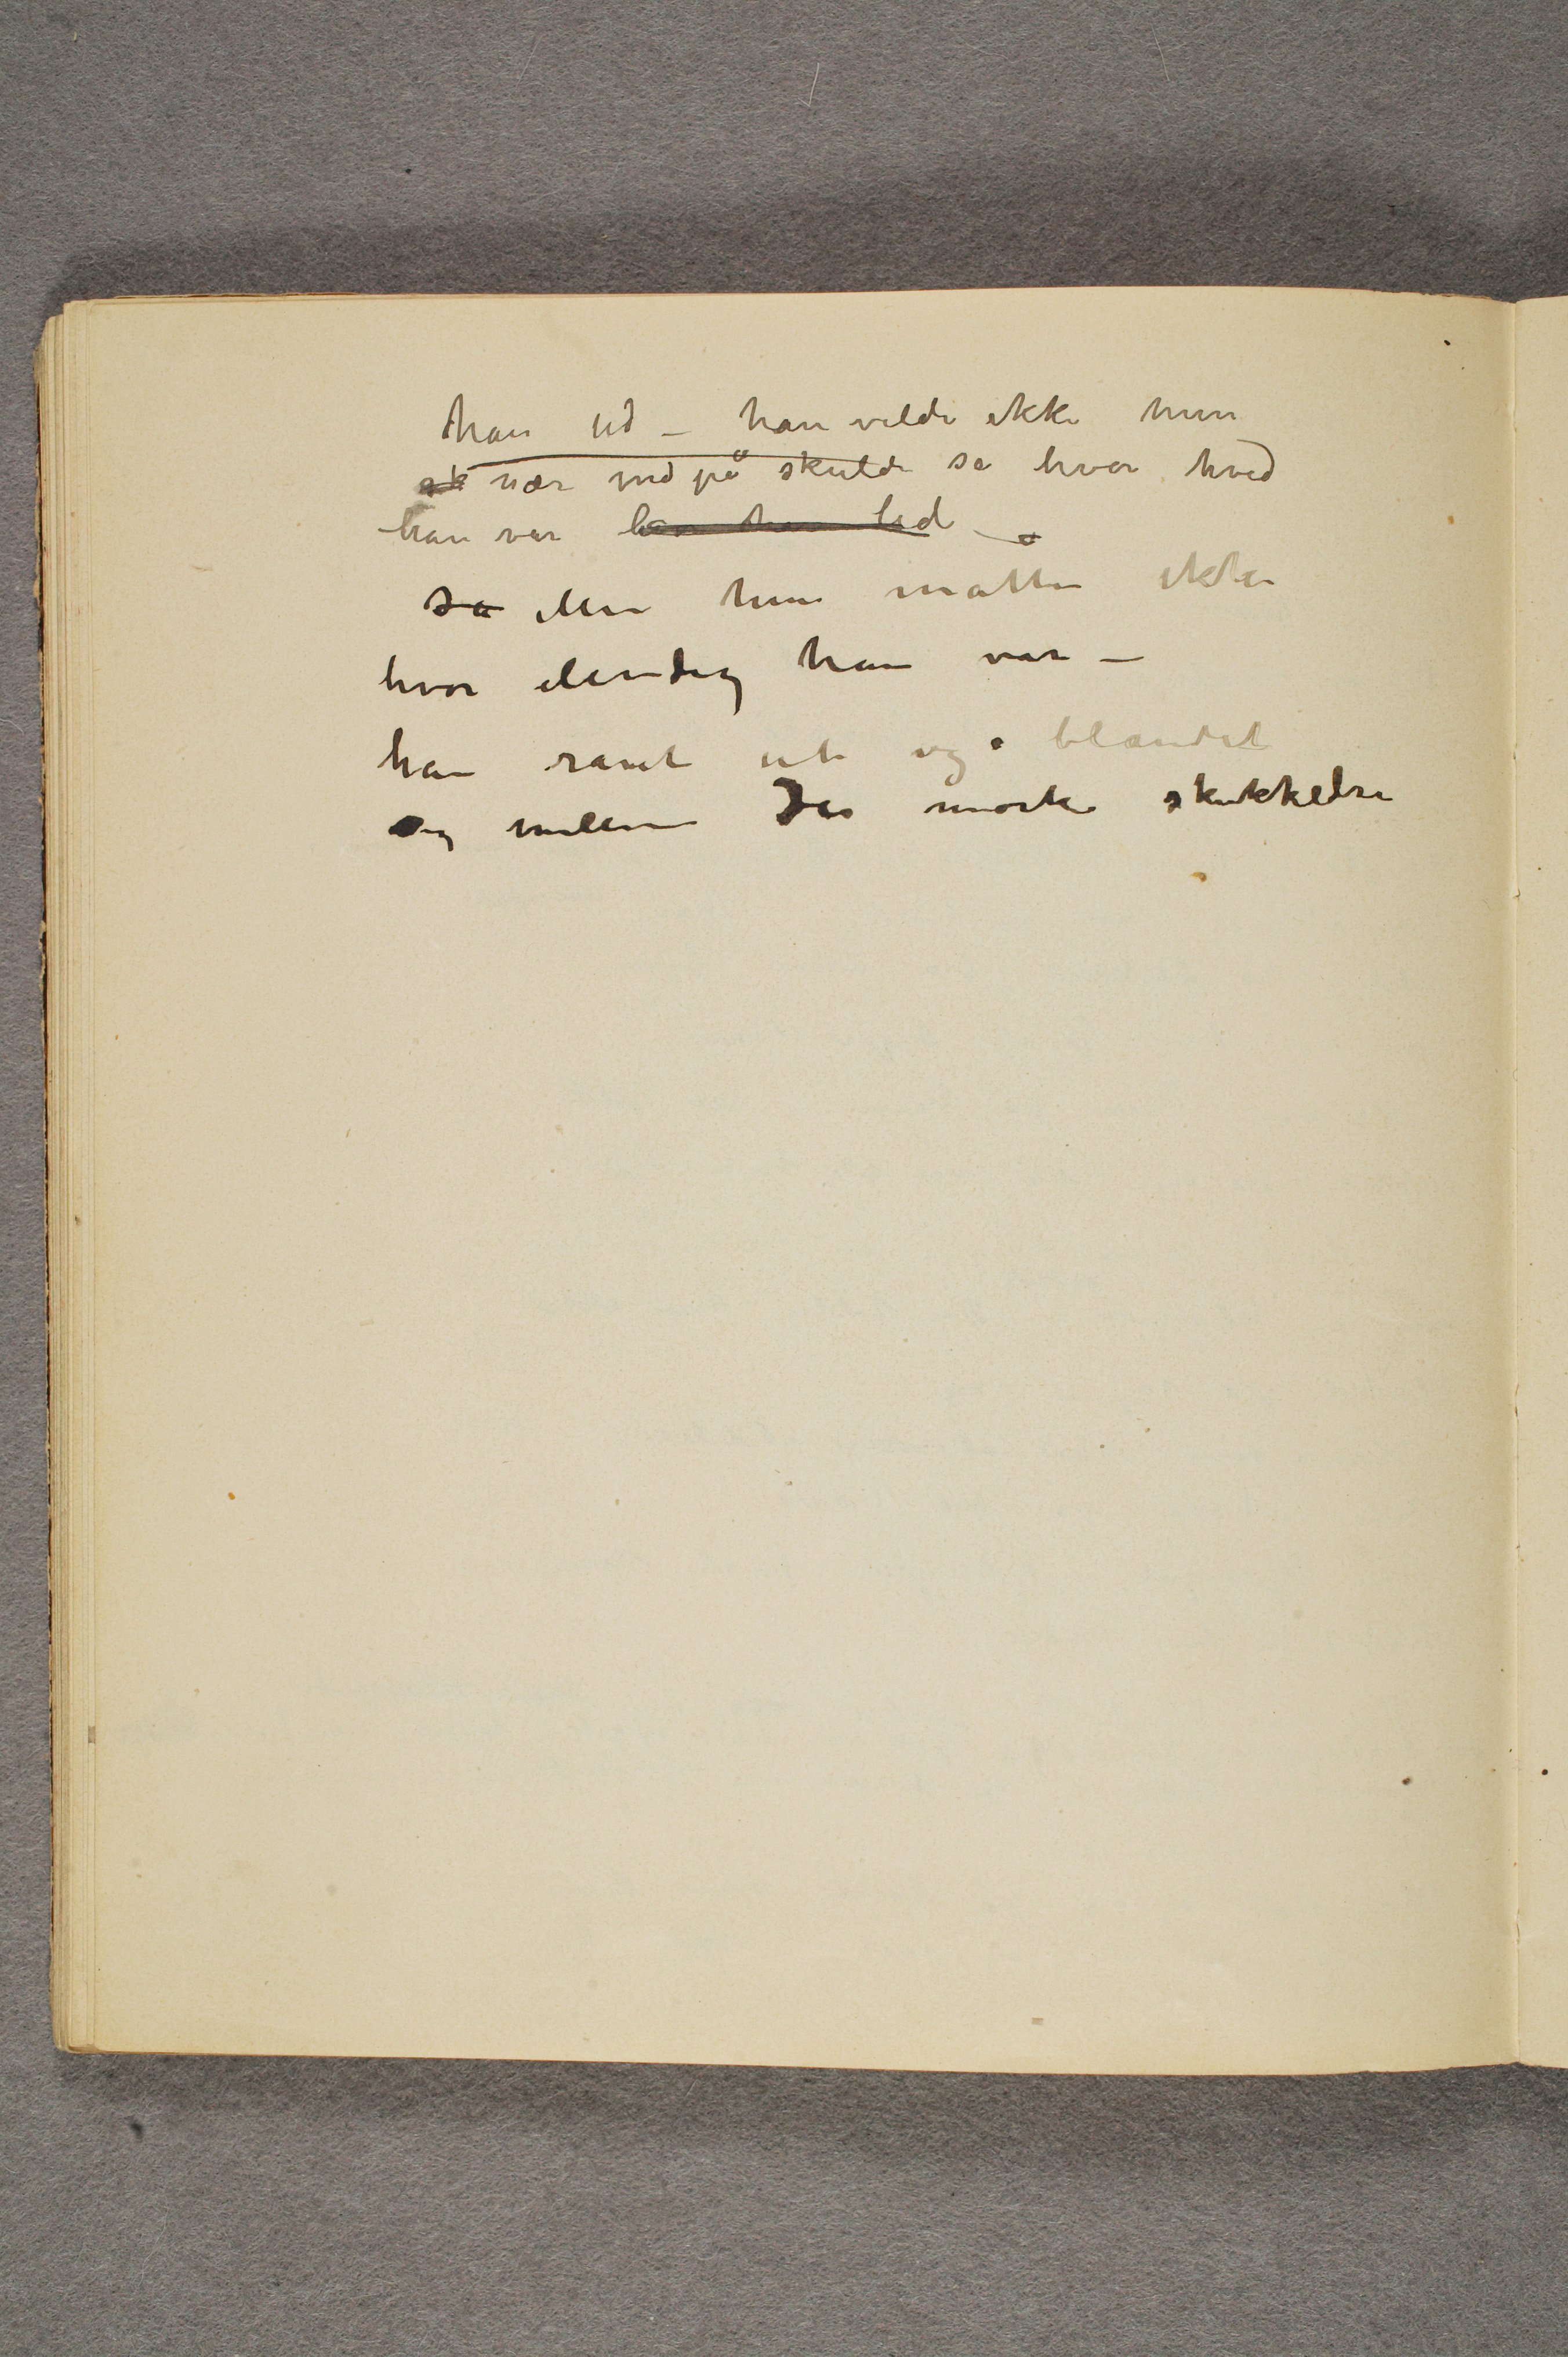 han ud – han vilde ikke hun
sk nær ind på skulde se hvor hvad
han var hvor han led –
så eller hun måtte ikke
hvor elendig han var –
han ravet ut og blandet
sig mellem de mørke skikkelser